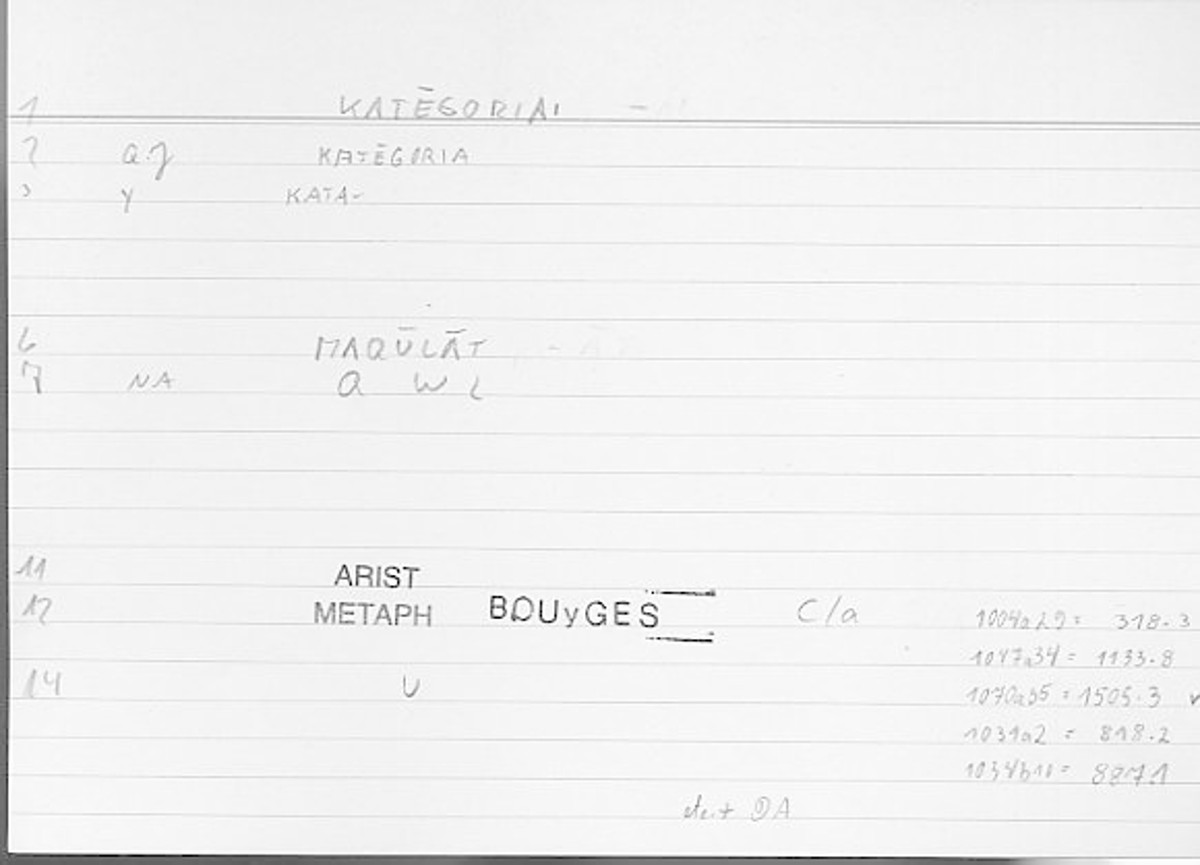 1 KATĒGORIAI
2 a.j KATĒGORIA
3 y KATA-
6 MAQŪLĀT
7 NA Q W L
11 ARIST
12 METAPH BOUyGES C/a 1004a29 = 318.3
1047a34 = 1133.8
1070a35 = 1505.3
14 U
1031a2 = 818.2
1034b10 = 887.1
DA